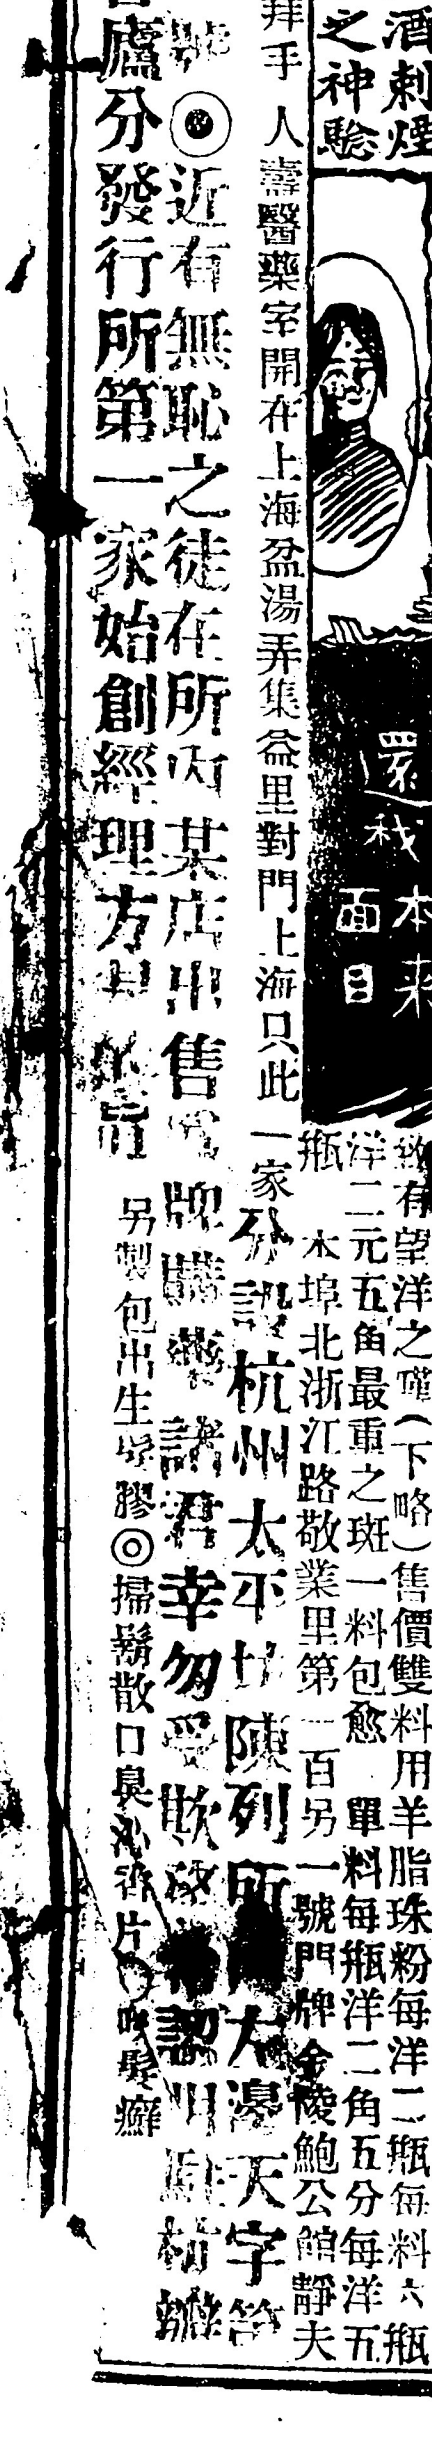 酒刺煙
之神驗
還我本来
面目
有望洋之嘆（下略）售價雙料用羊脂珠粉每洋二瓶每料六瓶
洋二元五角最重之斑一料包愈　單料每瓶洋二角五分每洋五
瓶　本埠北浙江路敬業里第一百另一號門牌金陵鮑公館靜夫
拜手　人壽醫藥室開在上海盆湯弄集益里對門上海只此一家分設杭州太平坊陳列所 左邊天字第
號◎近有無恥之徒在所內某店出售 牌 諸君幸勿受欺 認明
廬分發行所第一家始創經理方
另製包出生 膠◎掃鬍散口臭沁香片 髮癬